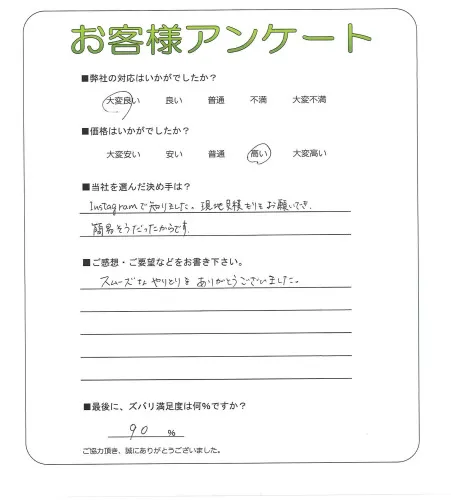 お客様アンケート
■弊社の対応はいかがでしたか?
大変良い 良い 普通 不満 大変不満
■価格はいかがでしたか?
大変安い 安い 普通 高い 大変高い
■当社を選んだ決め手は?
Instagramで知りました。現地見積もりもお願いでき、
簡易そうだったからです。
■ご感想・ご要望などをお書き下さい。
スムーズなやりとりをありがとうございました。
■最後に、ズバリ満足度は何%ですか?
90 %
ご協力頂き、誠にありがとうございました。